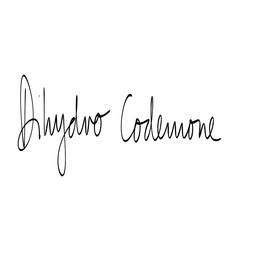 Dihydro Codemone